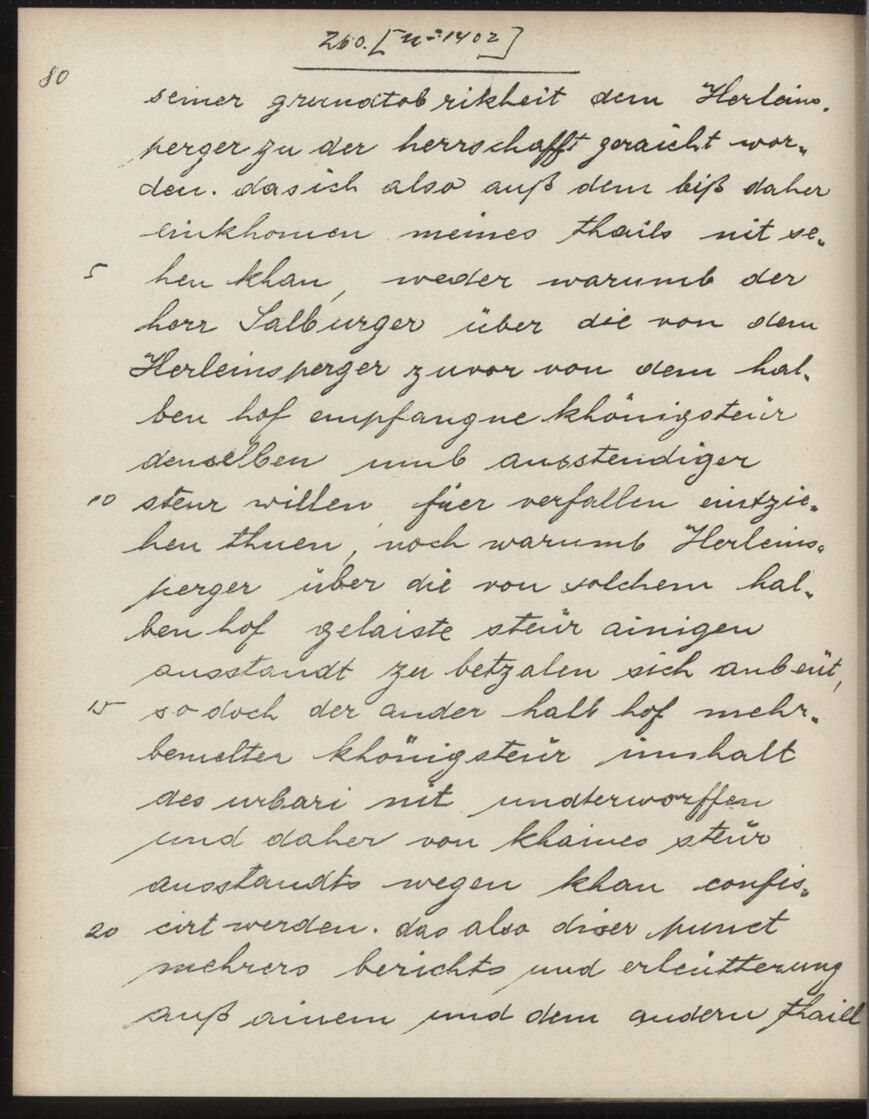 260. [n=1402]
80
seiner grundtobrikheit dem Herleins-
perger zu der herrschafft geraicht wor-
den. das ich also auß dem biß daher
einkhomen meines thails nit se-
5 hen khan, weder warumb der
herr Salburger über die von dem
Herleinsperger zuvor von dem hal-
ben hof empfangne khönigsteür
denselben umb ausstendiger
10 steur willen füer verfallen eintzie-
hen thuen, noch warumb Herleins-
perger über die von solchem hal-
ben hof gelaiste steür ainigen
ausstandt zu betzalen sich anbeüt,
15 so doch der ander halb hof mehr-
bemelter khönigsteür innhalt
des urbari nit underworffen
und daher von khaines steür
ausstandts wegen khan confis-
20 cirt werden. das also diser punct
mehrers berichts und erleütterung
auß ainem und dem andern thaill